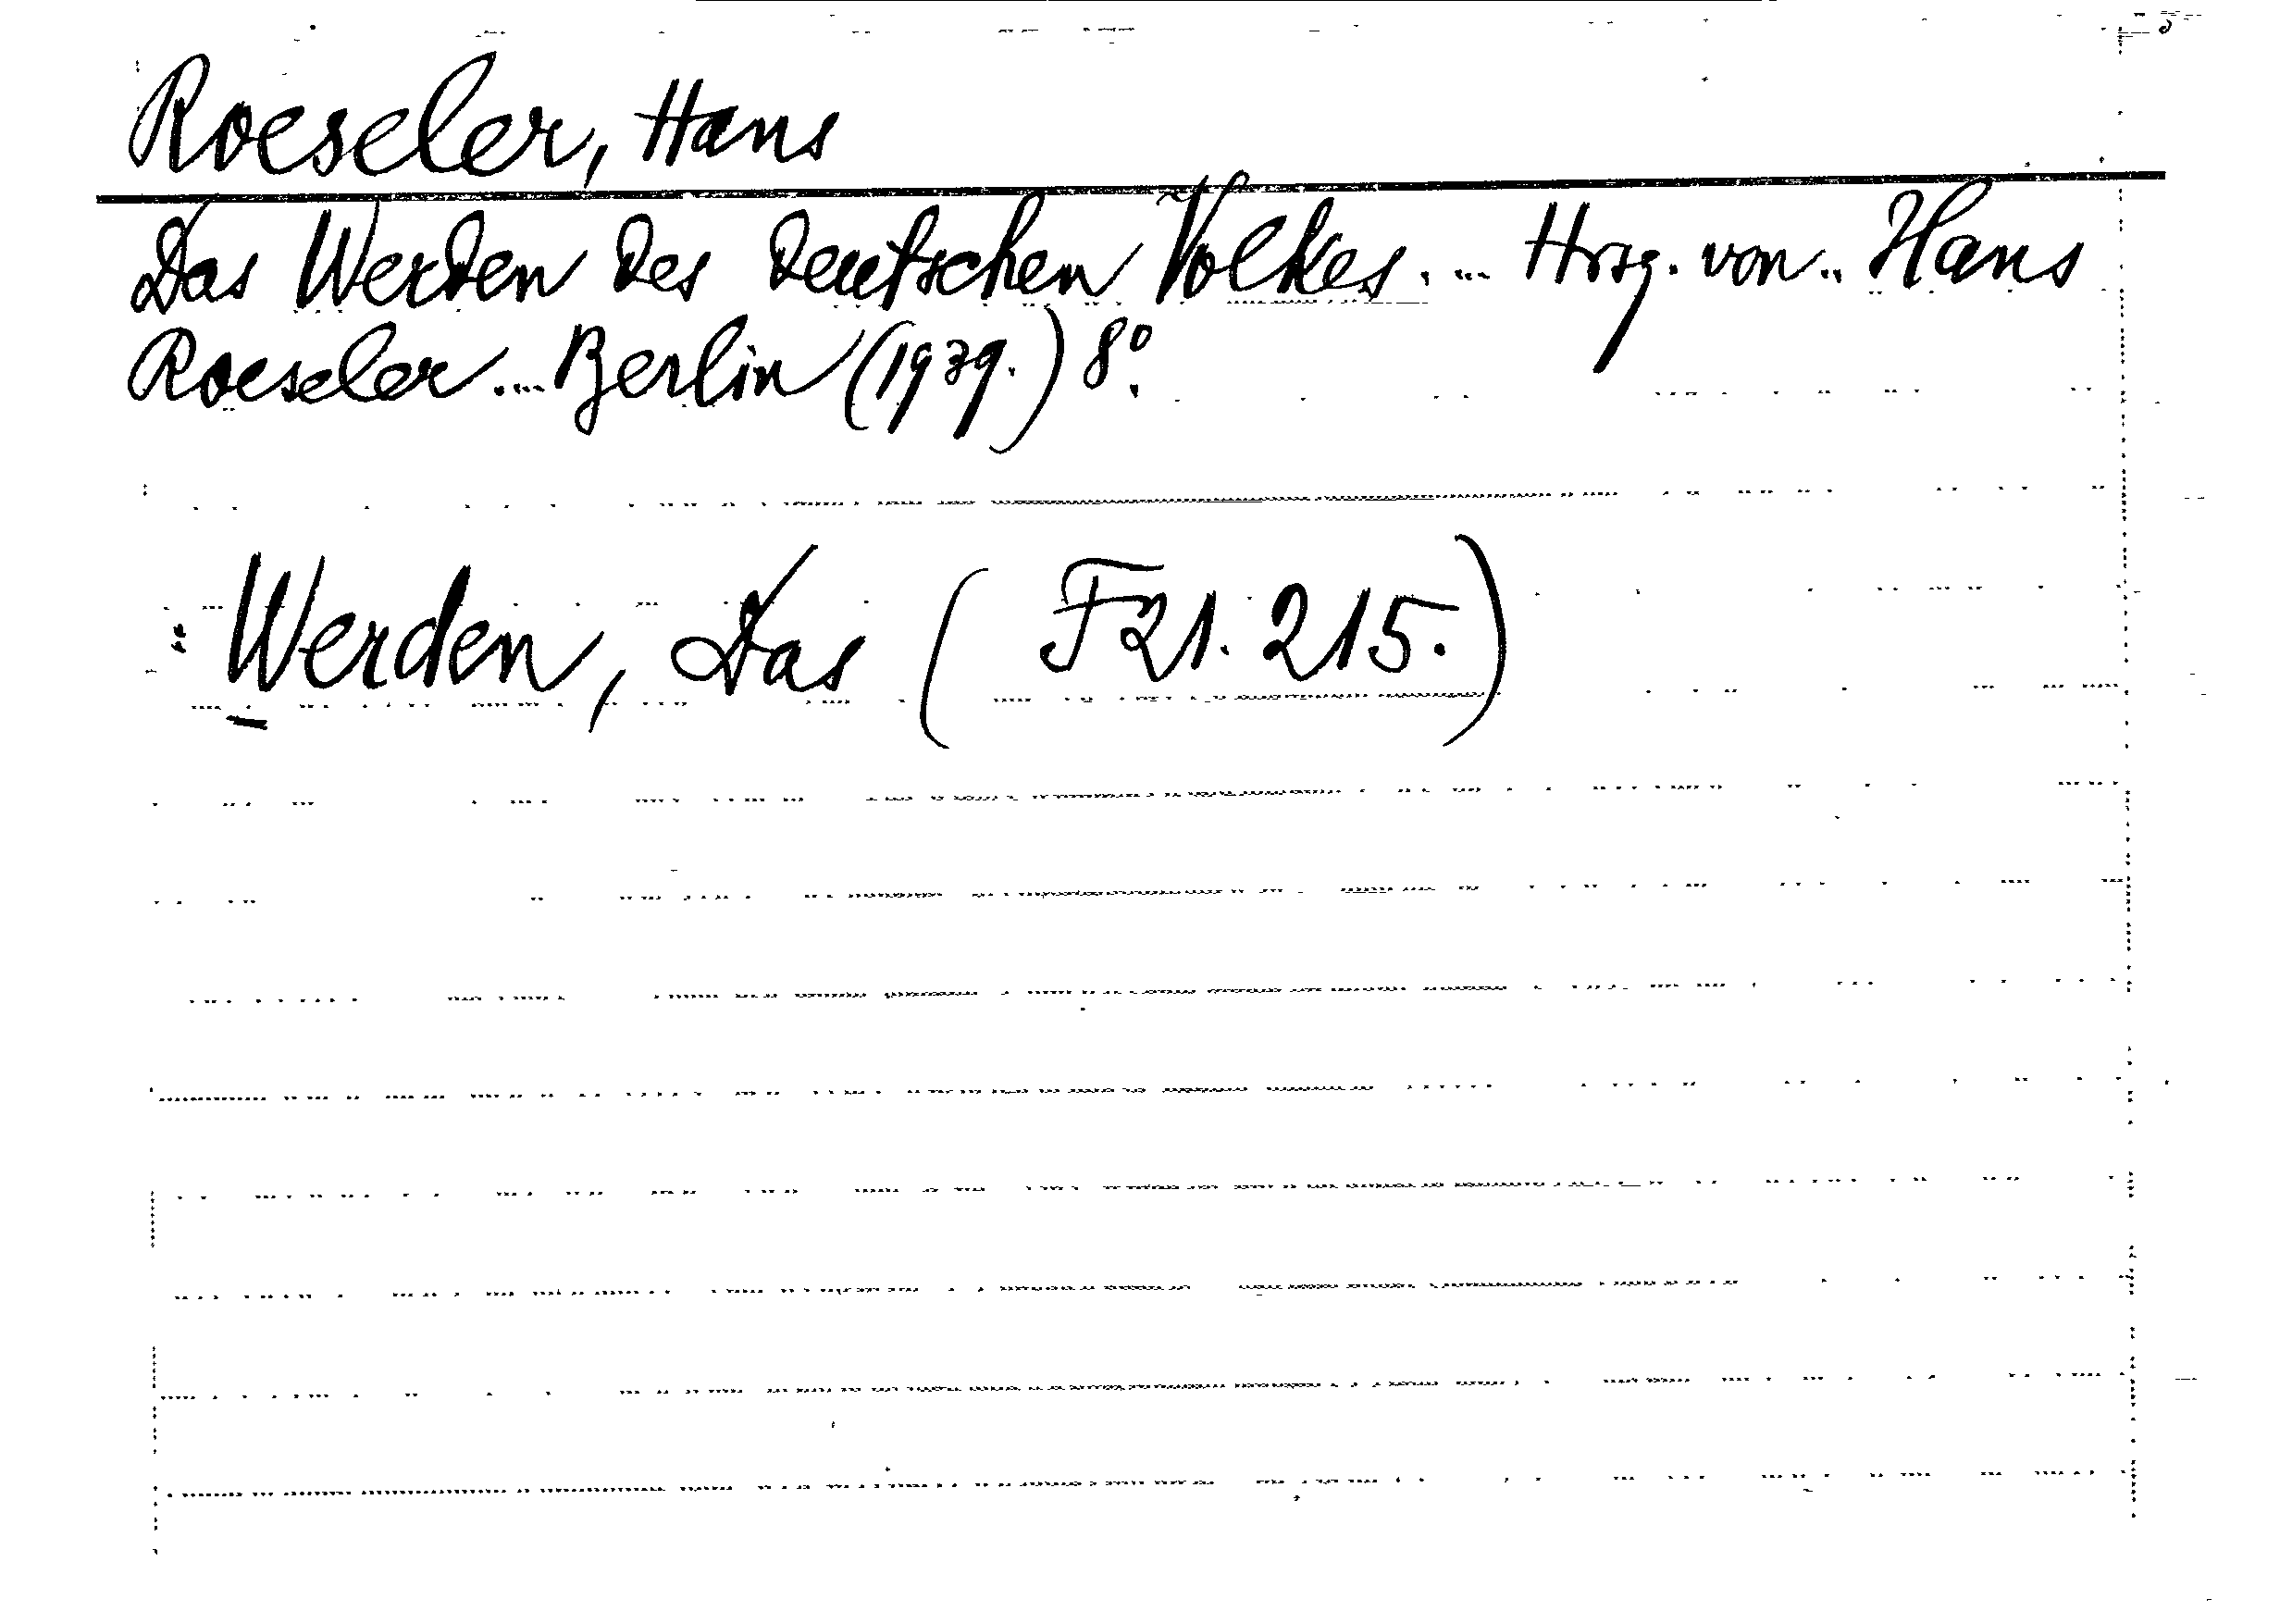 Roeseler, Hans
Das Werden des deutschen Volkes. ... Hrsg. von .. Hans
Roeseler .... Berlin (1939.) 8°.
: Werden, Das ( F21. 215.)